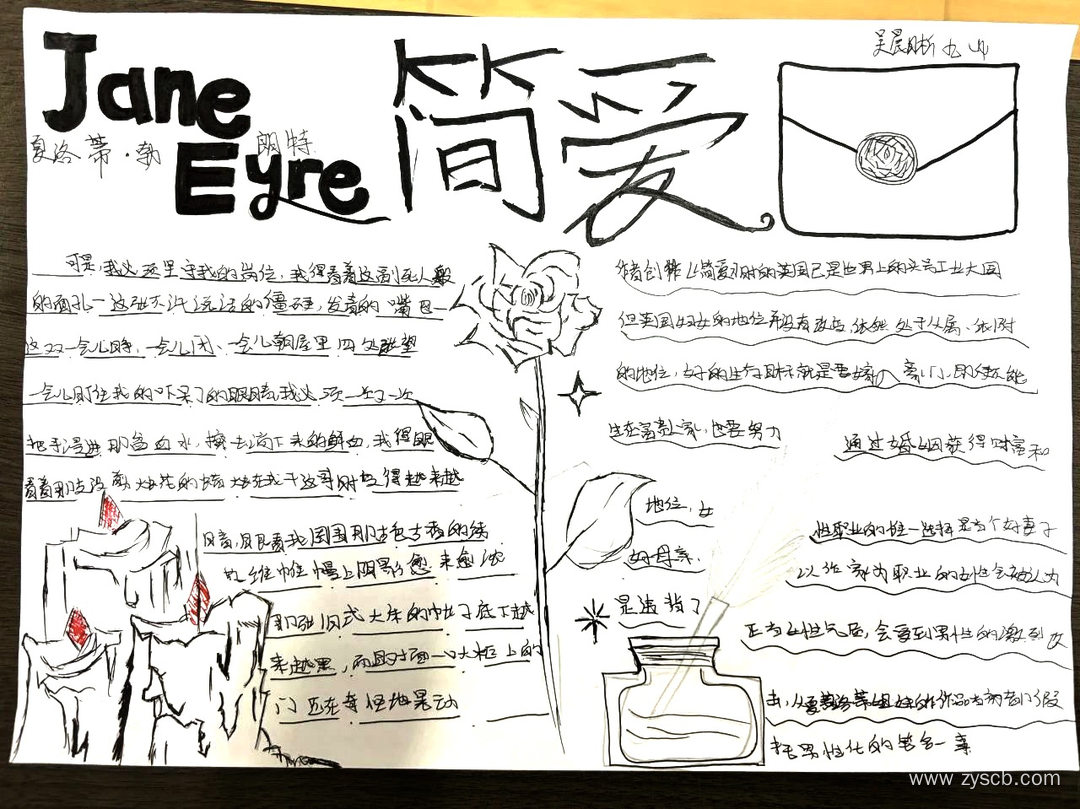 Jane
Eyre
夏洛蒂·勃朗特
简爱
吴晨昕 九
可是,我必须坚守我的岗位,我得看着这副死人般
的面孔一这张不许说话的僵硬,发青的嘴巴
这双一会儿睁,一会儿闭、一会儿朝屋里四处眺望
一会儿盯住我的吓呆了的眼睛,我必须一次又一次
把手浸进那盆血水,擦去淌下来的鲜血,我得眼
看着那支没剪烛花的蜡烛在我干这事时变得越来越
暗,眼看我周围那古色古香的绣
花维帷幔上阴影愈来愈浓
那张旧式大床的帐子底下越
来越黑,而且对面一口大柜上的
门还在奇怪地晃动
作者创作《简爱》时的英国已是世界上的头号工业大国
但英国妇女的地位并没有改变,依然处于从属、依附
的地位,女子的生存目标就是要嫁入豪门,即使不能
生在富裕之家,也要努力
通过婚姻获得财富和
地位,女
性职业的惟一选择是当个好妻子
好母亲,
以作家为职业的女性会被认为
是违背了
正当女性气质,会受到男性的激烈攻
击,从夏洛蒂姐妹的作品当初都以假
托男性化的笔名一事
www.zyscb.com